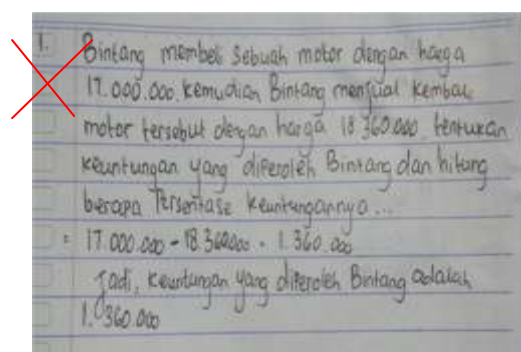 1. Bintang membeli sebuah motor dengan harga
17.000.000. kemudian Bintang menjual kembali
motor tersebut dengan harga 18 360.000 tentukan
keuntungan yang diperoleh Bintang dan hitung
berapa Persentase keuntungannya...
= 17.000.000 - 18.360.000 = 1.360.000
Jadi, keuntungan yang diperoleh Bintang adalah
1.360.000